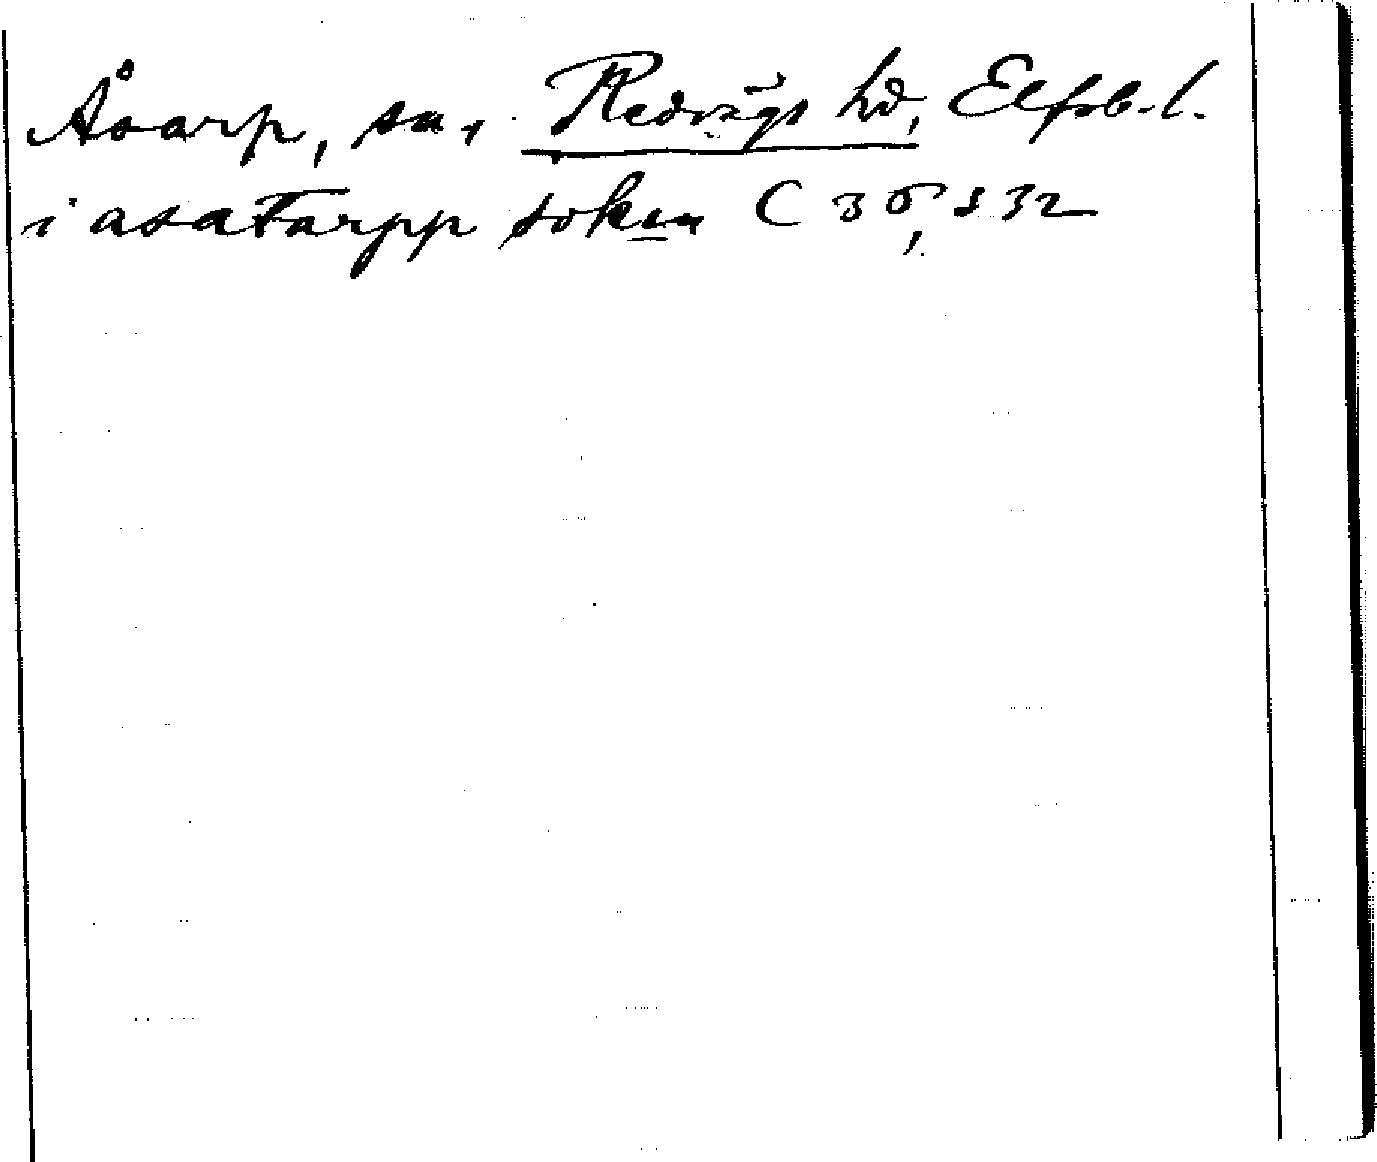 Åsarp, sn, Redvägs hd, Elfsb. l.
i asatarpp soken C 35, s 32